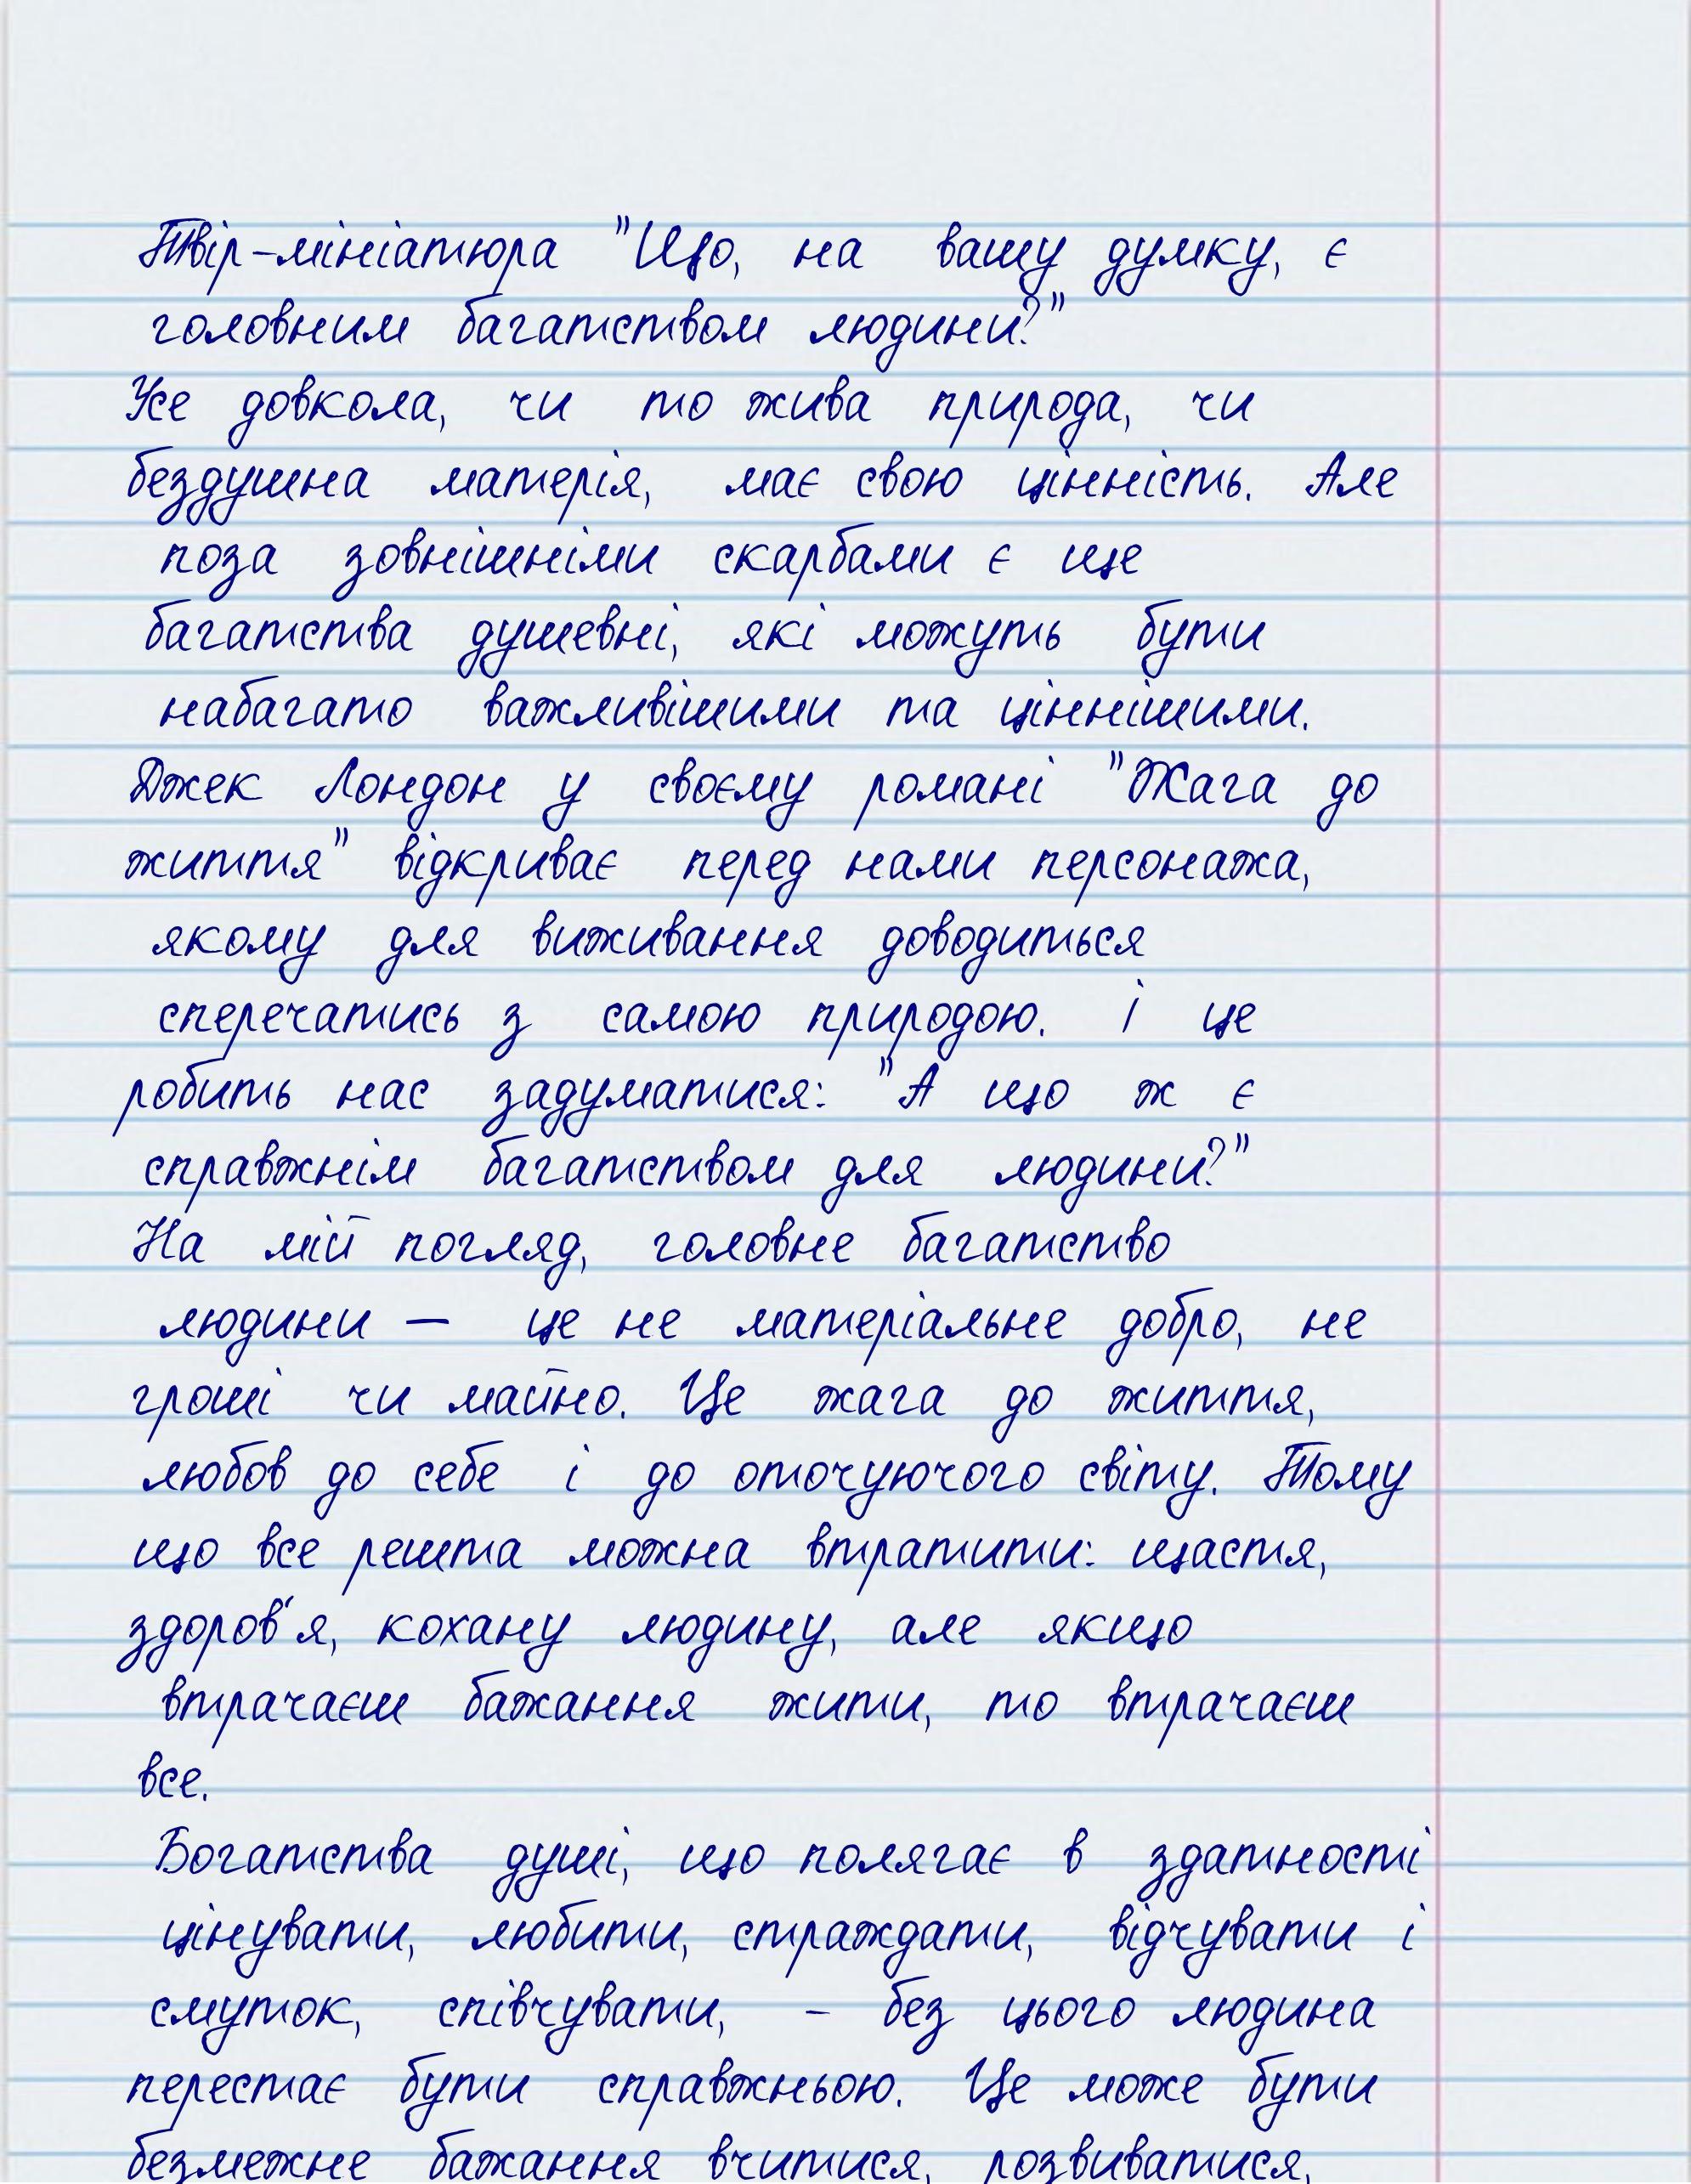 Твір-мініатюра "Що, на вашу думку, є
головним багатством людини?"
Усе довкола, чи то жива природа, чи
бездушна матерія, має свою цінність. Але
поза зовнішніми скарбами є ще
багатства душевні, які можуть бути
набагато важливішими та ціннішими.
Джек Лондон у своєму романі "Жага до
життя" відкриває перед нами персонажа,
якому для виживання доводиться
сперечатись з самою природою. і це
робить нас задуматися: "А що ж є
справжнім багатством для людини?"
На мій погляд, головне багатство
людини — це не матеріальне добро, не
гроші чи майно. Це жага до життя,
любов до себе і до оточуючого світу. Тому
що все решта можна втратити: щастя,
здоров'я, кохану людину, але якщо
втрачаєш бажання жити, то втрачаєш
все.
Богатства душі, що полягає в здатності
цінувати, любити, страждати, відчувати і
смуток, співчувати, - без цього людина
перестає бути справжньою. Це може бути
безмежне бажання вчитися, розвиватися,